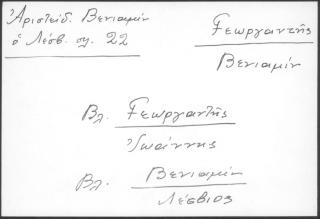 Ἀριστείδ. Βενιαμίν
ὁ Λέσβ. σελ. 22
Γεωργαντῆς
Βενιαμίν
Βλ. Γεωργαντῆς
Ἰωάννης
Βλ. Βενιαμίν
Λέσβιος